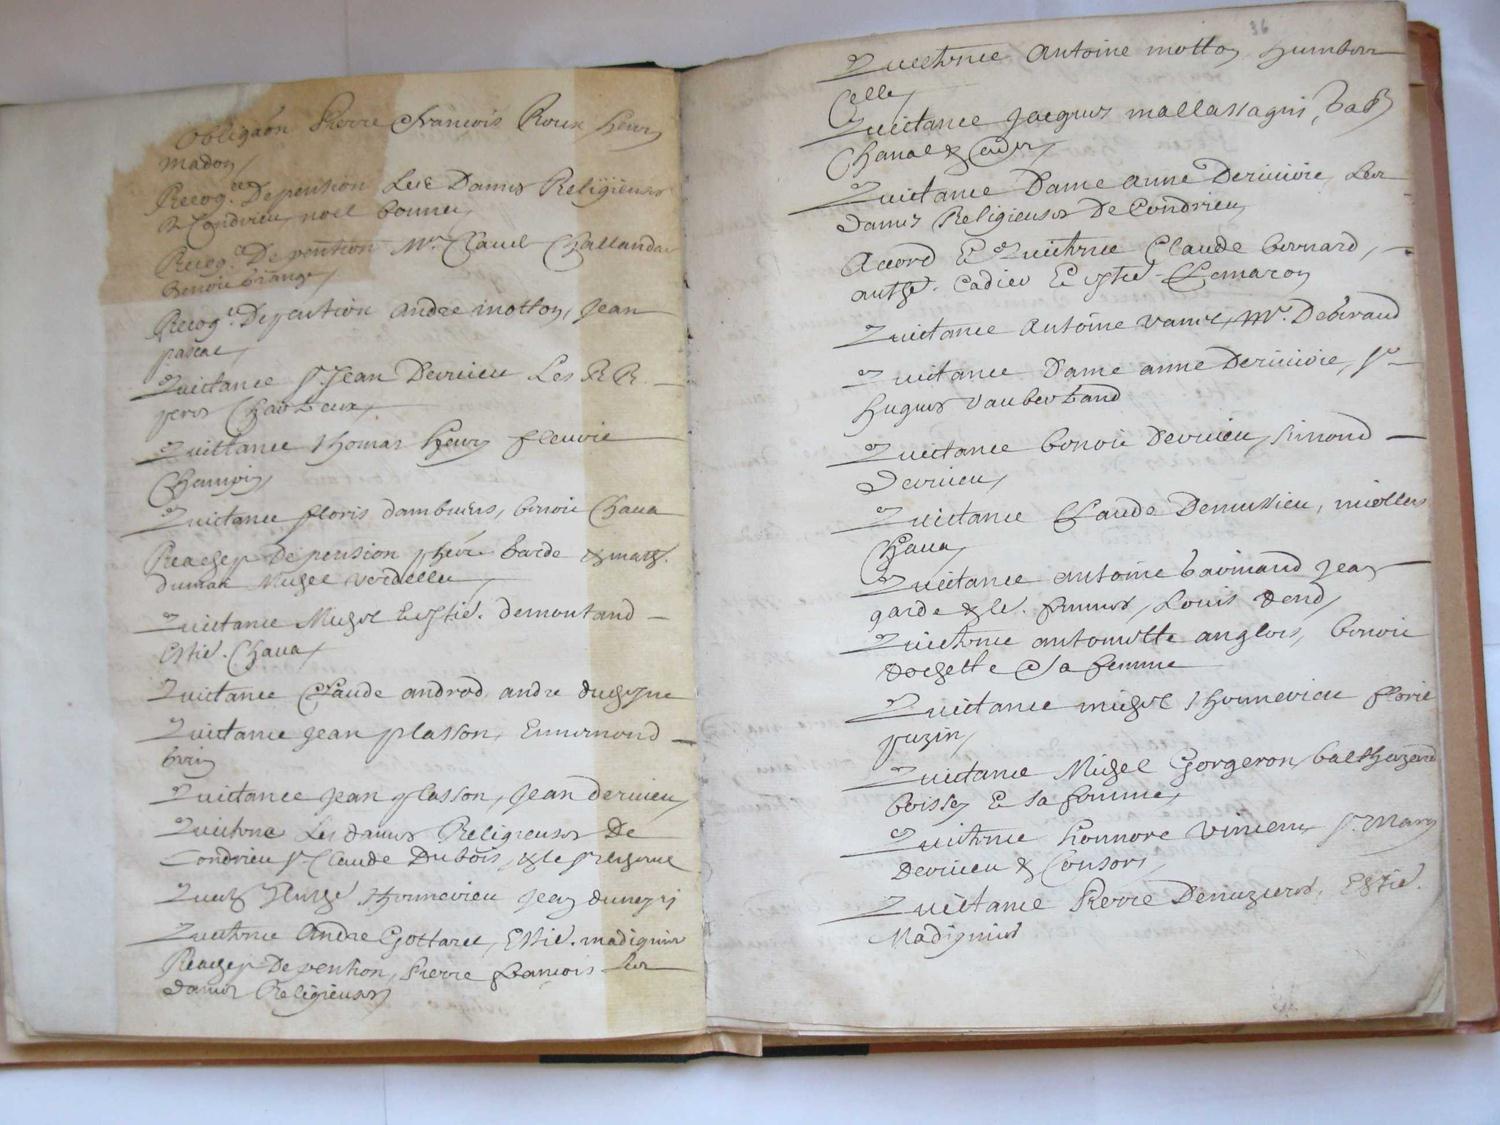 Obligaon Pierre François Roux henry
madon
Recog.ce De pension Les Dames Religieuses
De Condrieu noel bonnet
Recog.ce De pention Mr. Claude Challandar
Benoit
Recog.ce De pention andre motton, Jean
pascal
Quictance Sr. Jean Derieu Les R R.
peres Chartreux,
Quittance Thomas henry fleurie
Champin
Quictance floris dambuens, benoit Chava
Reachept De pension barde & marg.
dumas Michel verdellet
Quictance Michel Estie. demontand
Estie. Chava
Quictance Claude androd andre
Quictance Jean plasson, Ennemond
Quictance Jean plasson, Jean derieu,
Quictance Les dames Religieuses De
Condrieu Sr. Claude Dubois, & le Sr
Thonnerieu Jean
Quictance Andre Gottarel, Estie. madignier
Reachept De pention, Pierre francois Les
dames Religieuses
36
Quictance Antoine motton humbert
Celle
Quictance Jacques mallassagni,
Chanal &
Quictance Dame anne Deriviere Les
Dames Religieuses De Condrieu
Accord Et Quictance Claude bernard,
anthe. Cadier Et Estie. Clemaron
Quictance Antoine Mr. Debiraud
Quictance Dame anne Deriviere, Sr
hugues vaubertand
Quictance benoit Derieu, Simond
Derieu,
Quictance Claude Demussieu, nicollas
Chava
Quictance antoine barinand Jean
garde & le. femmes, Louis dend
Quictance antoinette anglois, benoit
dochette & sa femme
Quictance michel Thonnerieu florie
puzin
Quictance Michel Gorgeron balthazard
boissey Et sa femme,
Quictance honnore vincent, Sr. Mary
Derieu & Consors
Quictance Pierre Denuzieres, Estie.
Madignier